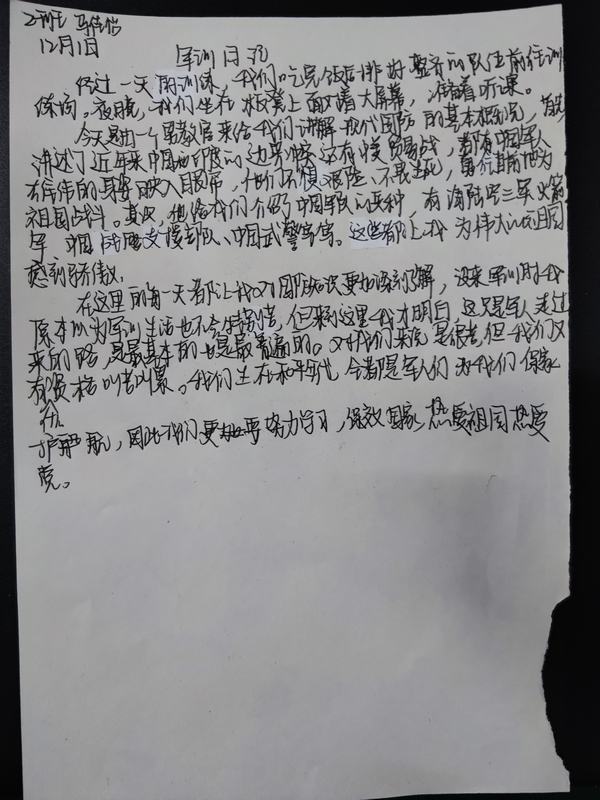 2班 马佳怡
12月1日
军训日记
经过一天的训练，我们吃完饭后排好整齐的队伍前往训
练场。夜晚，我们坐在板凳上面对着大屏幕，准备着听课。
今天是由一个男教官来给我们讲解现代国防的基本概况，首先
讲述了近年来中国和印度的边界冲突还有贸易战，都有中国军人
在伟的身影映入眼帘，他们不惧艰险、不畏生死，勇往直前地为
祖国战斗。其次，他给我们介绍了中国军队的兵种，有海陆空三军火箭
军 中国战略支援部队、中国武警官宣。这些都让我为伟大的祖国
感到骄傲.
在这里的每一天都让我对国防知识更加深刻了解，没来军训时我
原本以为军训生活也不会特别苦，但来到这里我才明白，这只是军人走过
来的路，是最基本的也是最普遍的。对我们来说是很苦，但我们没
有资格叫苦叫累。我们生在和平年代，全都是军人们为我们保家
护航，因此我们更加要努力学习，保效国家，热爱祖国热爱
党。